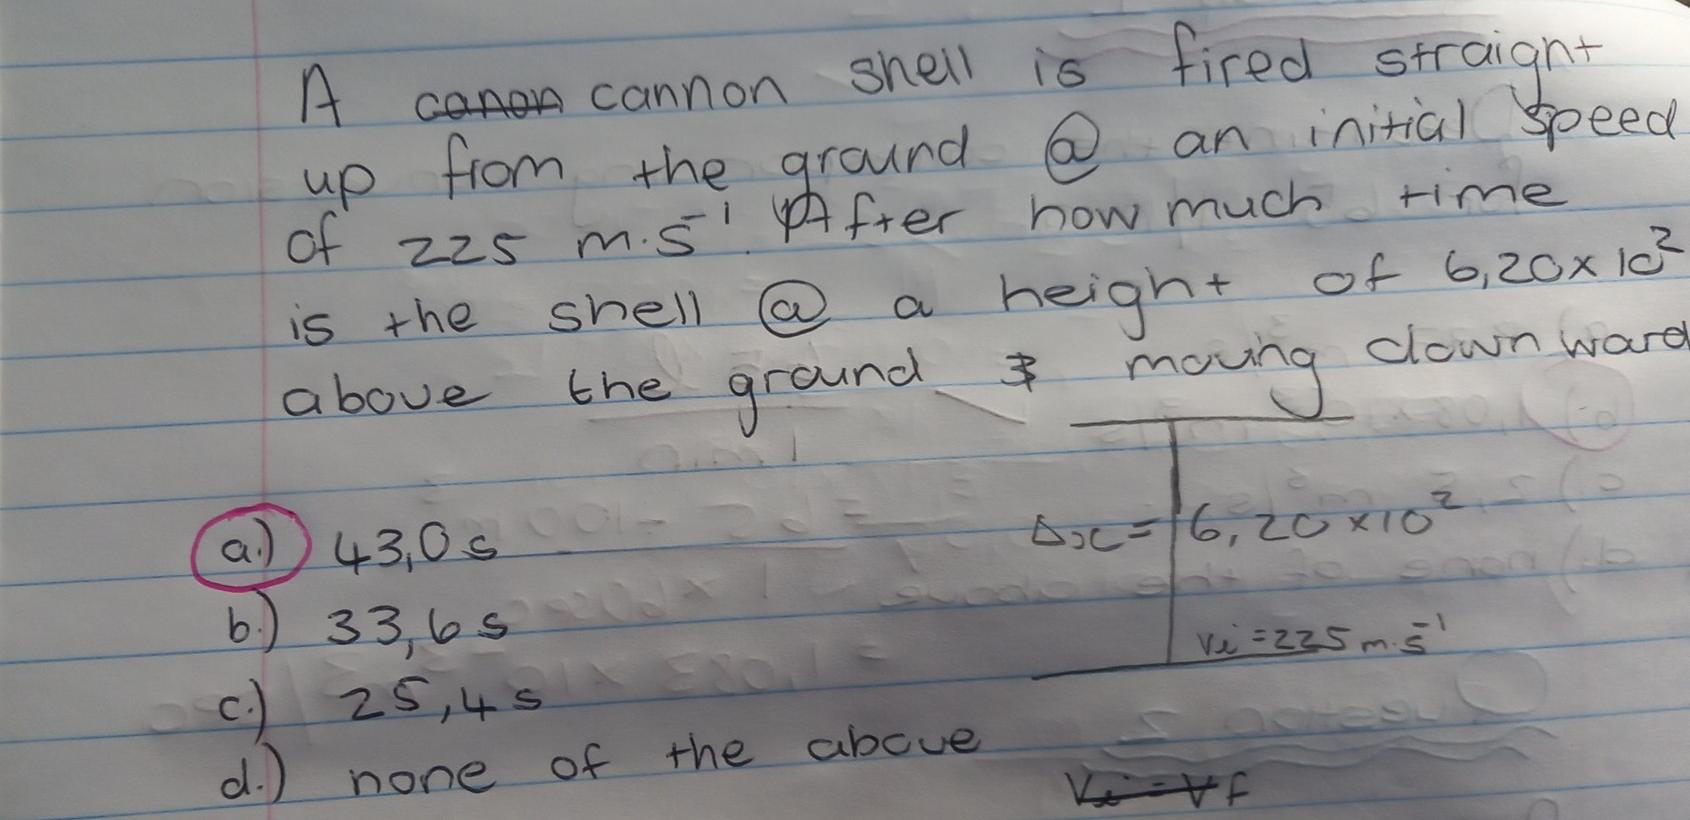 A canon cannon shell is fired straight
up from the ground @ an initial speed
of 225 m.s⁻¹. After how much time
is the shell @ a height of 6,20x10²
above the ground & moving downward
a.) 43,0s
b.) 33,6s
c.) 25,4s
d.) none of the above
Δx = 6,20x10²
vi = 225 m.s⁻¹
Vi = Vf